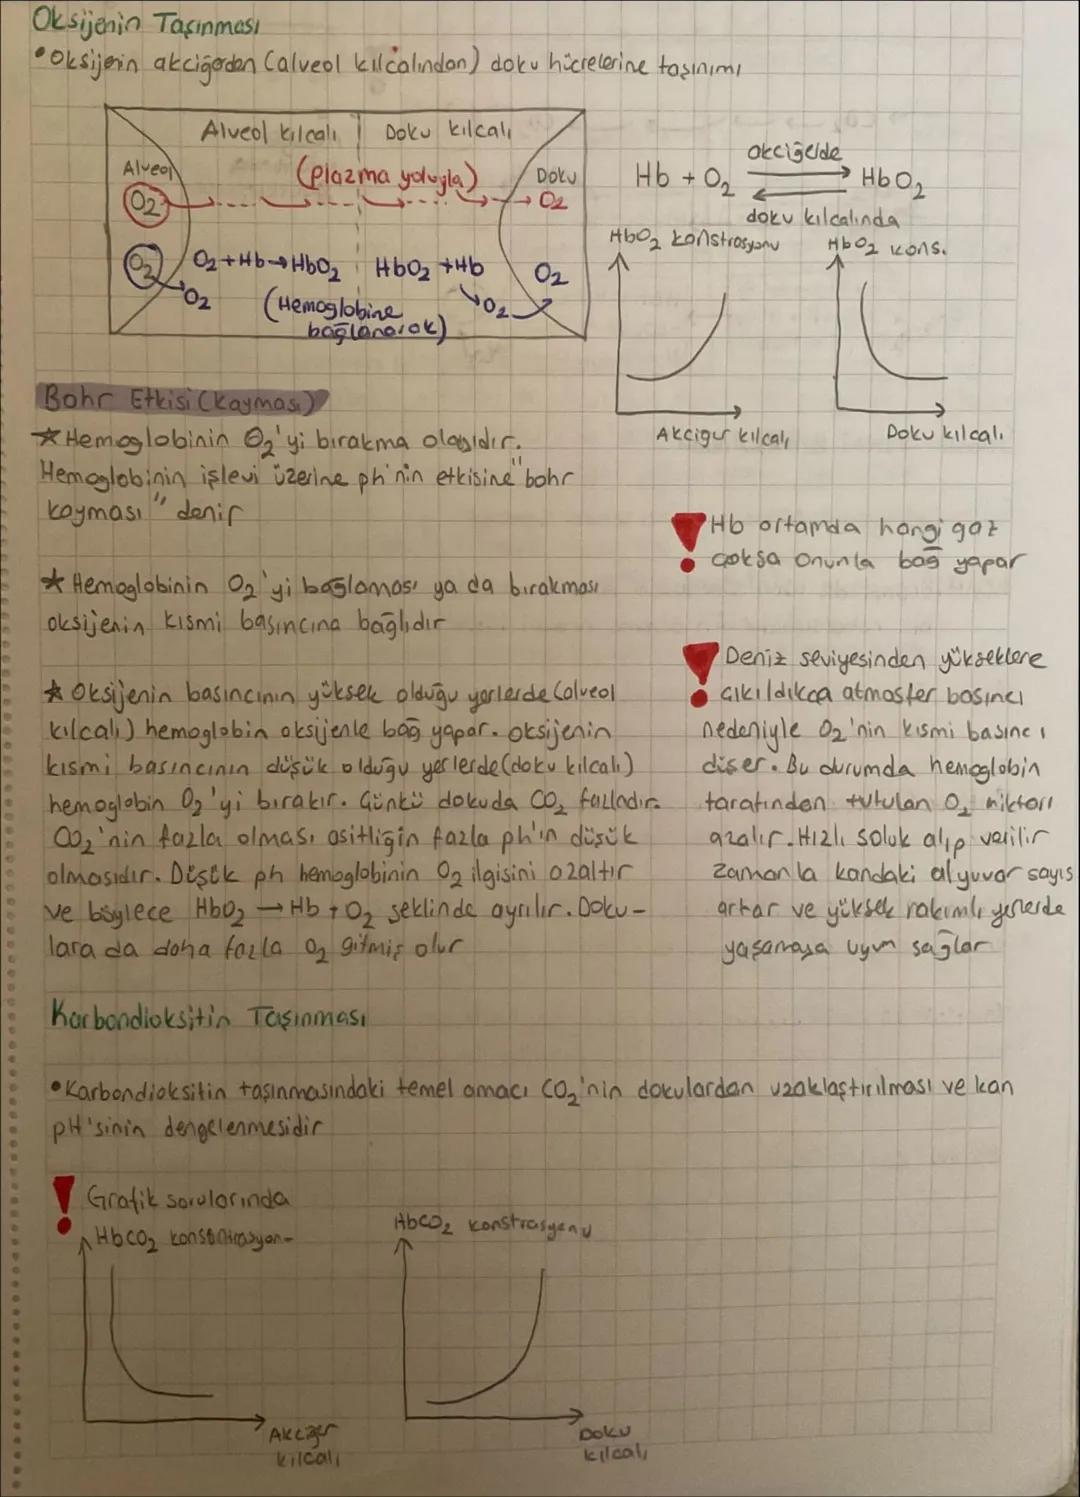 Oksijenin Taşınması
• Oksijenin akciğerden (alveol kılcalından) doku hücrelerine taşınımı
Alveol kılcalı
Doku kılcalı
Alveol
(plazma yoluyla)
Doku
O2
O2
O2
O2
O2+Hb→HbO2
(Hemoglobine
bağlanarak)
HbO2 +Hb
O2
O2
Hb + O2
akciğerde
doku kılcalında
HbO2
HbO2 konstrasyonu
Akciğer kılcalı
HbO2 kons.
Doku kılcalı
Bohr Etkisi (Kayması)
★ Hemoglobinin O2'yi bırakma olayıdır.
Hemoglobinin işlevi üzerine ph'nin etkisine "bohr
kayması" denir
★ Hemoglobinin O2'yi bağlaması ya da bırakması
oksijenin kısmi basıncına bağlıdır
★ Oksijenin basıncının yüksek olduğu yerlerde (alveol
kılcalı) hemoglobin oksijenle bağ yapar. Oksijenin
kısmi basıncının düşük olduğu yerlerde (doku kılcalı)
hemoglobin O2'yi bırakır. Çünkü dokuda CO2 fazladır.
CO2'nin fazla olması asitliğin fazla ph'ın düşük
olmasıdır. Düşük ph hemoglobinin O2 ilgisini azaltır
ve böylece HbO2 → Hb + O2 şeklinde ayrılır. Doku-
lara da daha fazla O2 gitmiş olur
! Hb ortamda hangi gaz
çoksa onunla bağ yapar
! Deniz seviyesinden yükseklere
çıkıldıkça atmosfer basıncı
nedeniyle O2'nin kısmi basıncı
düşer. Bu durumda hemoglobin
tarafından tutulan O2 miktarı
azalır. Hızlı soluk alıp verilir
zamanla kandaki alyuvar sayıs
artar ve yüksek rakımlı yerlerde
yaşamaya uyum sağlar
Karbondioksitin Taşınması
• Karbondioksitin taşınmasındaki temel amacı CO2'nin dokulardan uzaklaştırılması ve kan
pH'sinin dengelenmesidir
! Grafik sorularında
HbCO2
Akciğer
kılcalı
HbCO2 konstrasyonu
Doku
kılcalı